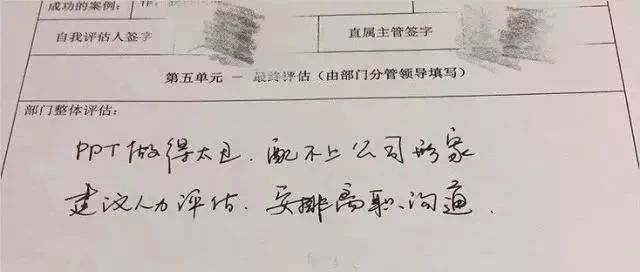 成功的案例:
自我评估人签字 直属主管签字
第五单元 — 最终评估(由部门分管领导填写)
部门整体评估:
PPT做得太丑，配不上公司形象
建议人力评估，安排离职沟通.